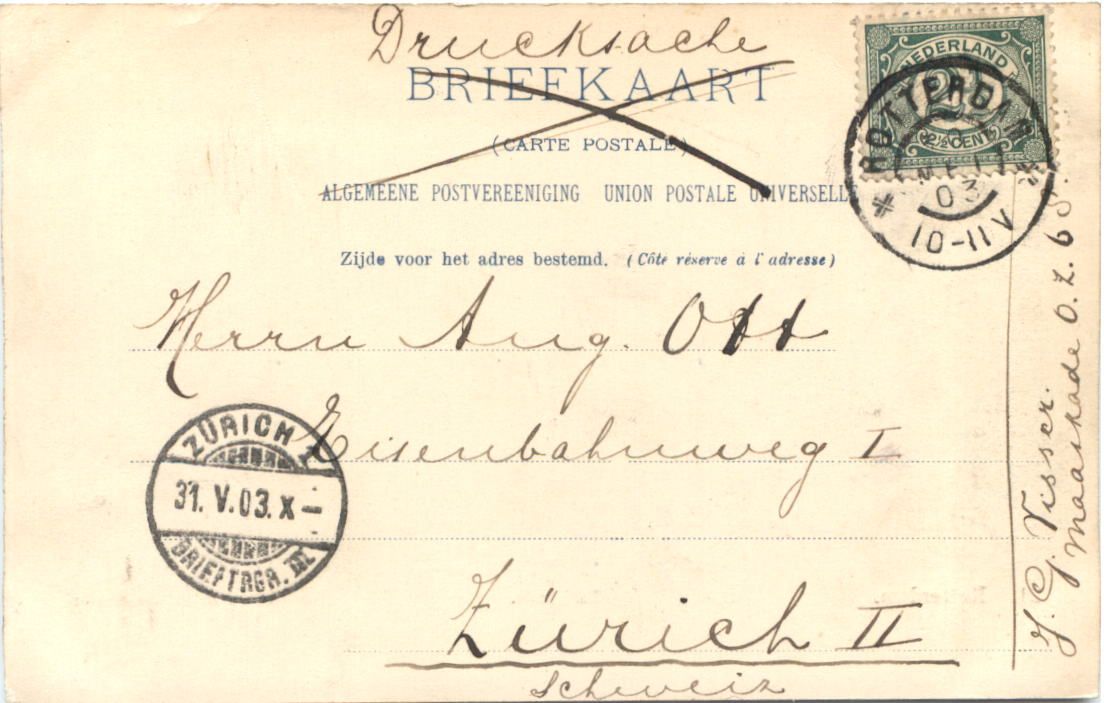 Drucksache
BRIEFKAART
(CARTE POSTALE)
ALGEMEENE POSTVEREENIGING UNION POSTALE UNIVERSELLE
Zijde voor het adres bestemd. (Côté réservé à l'adresse)
NEDERLAND
2½
2½ CENT
ROTTERDAM
03
10-11 V
Herrn Aug. Ott
Eisenbahnweg I
Zürich II
Schweiz
ZÜRICH
31. V. 03. X –
BRIEFTRGR. III
J. G. Visser.
Maaskade O.Z. 65.